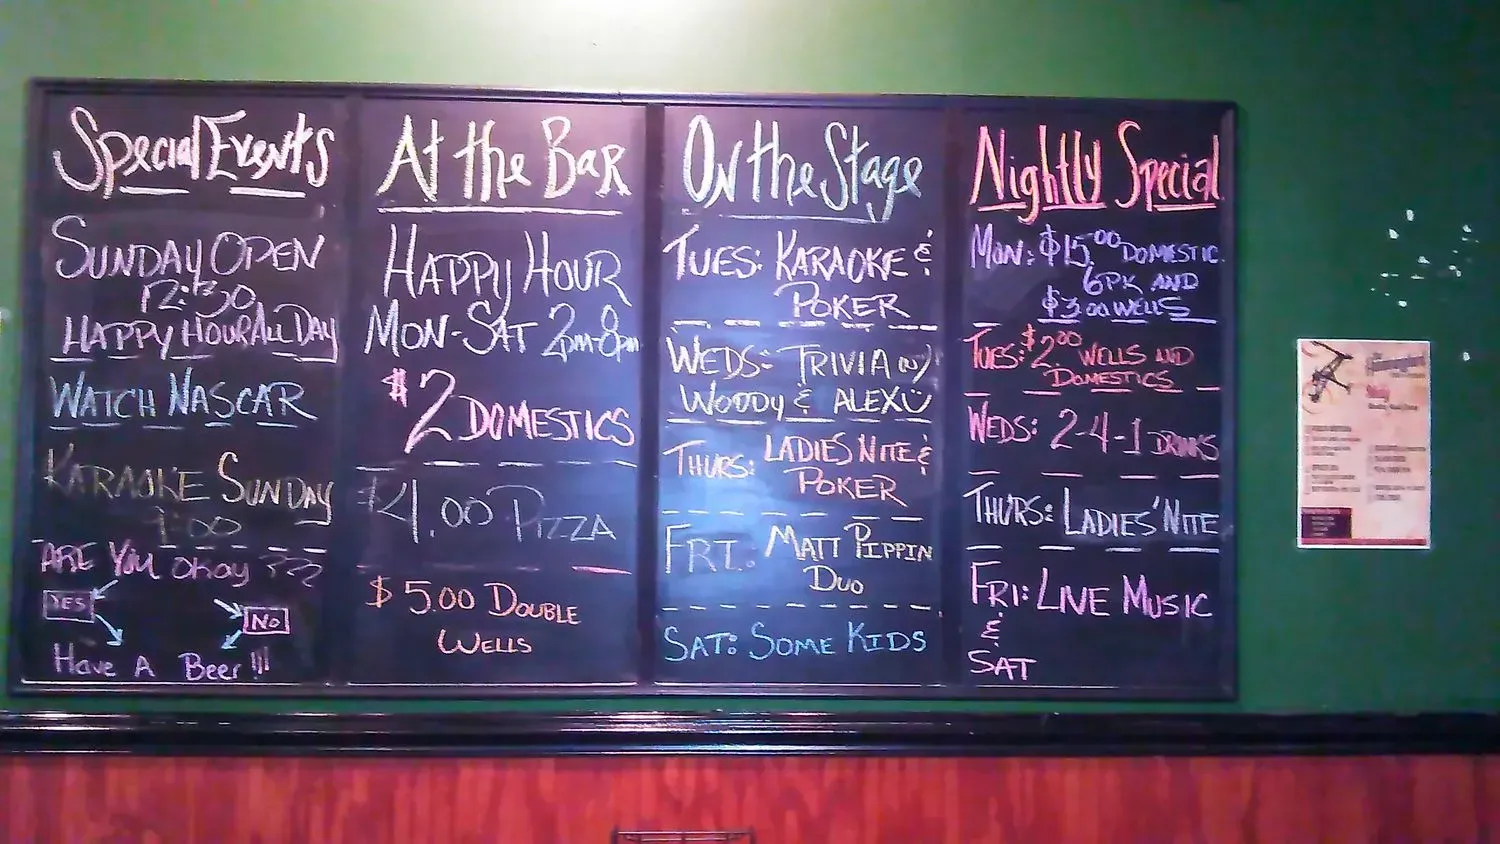 Special Events
SUNDAY OPEN
12:30
HAPPY HOUR ALL DAY
WATCH NASCAR
KARAOKE SUNDAY
9:00
ARE YOU OKAY ???
YES
NO
Have A Beer!!!
At the Bar
HAPPY HOUR
MON-SAT 2pm-8pm
$2 DOMESTICS
$4.00 PIZZA
$5.00 DOUBLE
WELLS
On the Stage
TUES: KARAOKE &
POKER
WEDS: TRIVIA w/
WOODY & ALEX
THURS: LADIES NITE &
POKER
FRI: MATT PIPPIN
DUO
SAT: SOME KIDS
Nightly Special
MON: $15.00 DOMESTIC
6PK AND
$3.00 WELLS
TUES: $2.00 WELLS AND
DOMESTICS
WEDS: 2-4-1 DRINKS
THURS: LADIES' NITE
FRI: LIVE MUSIC
&
SAT